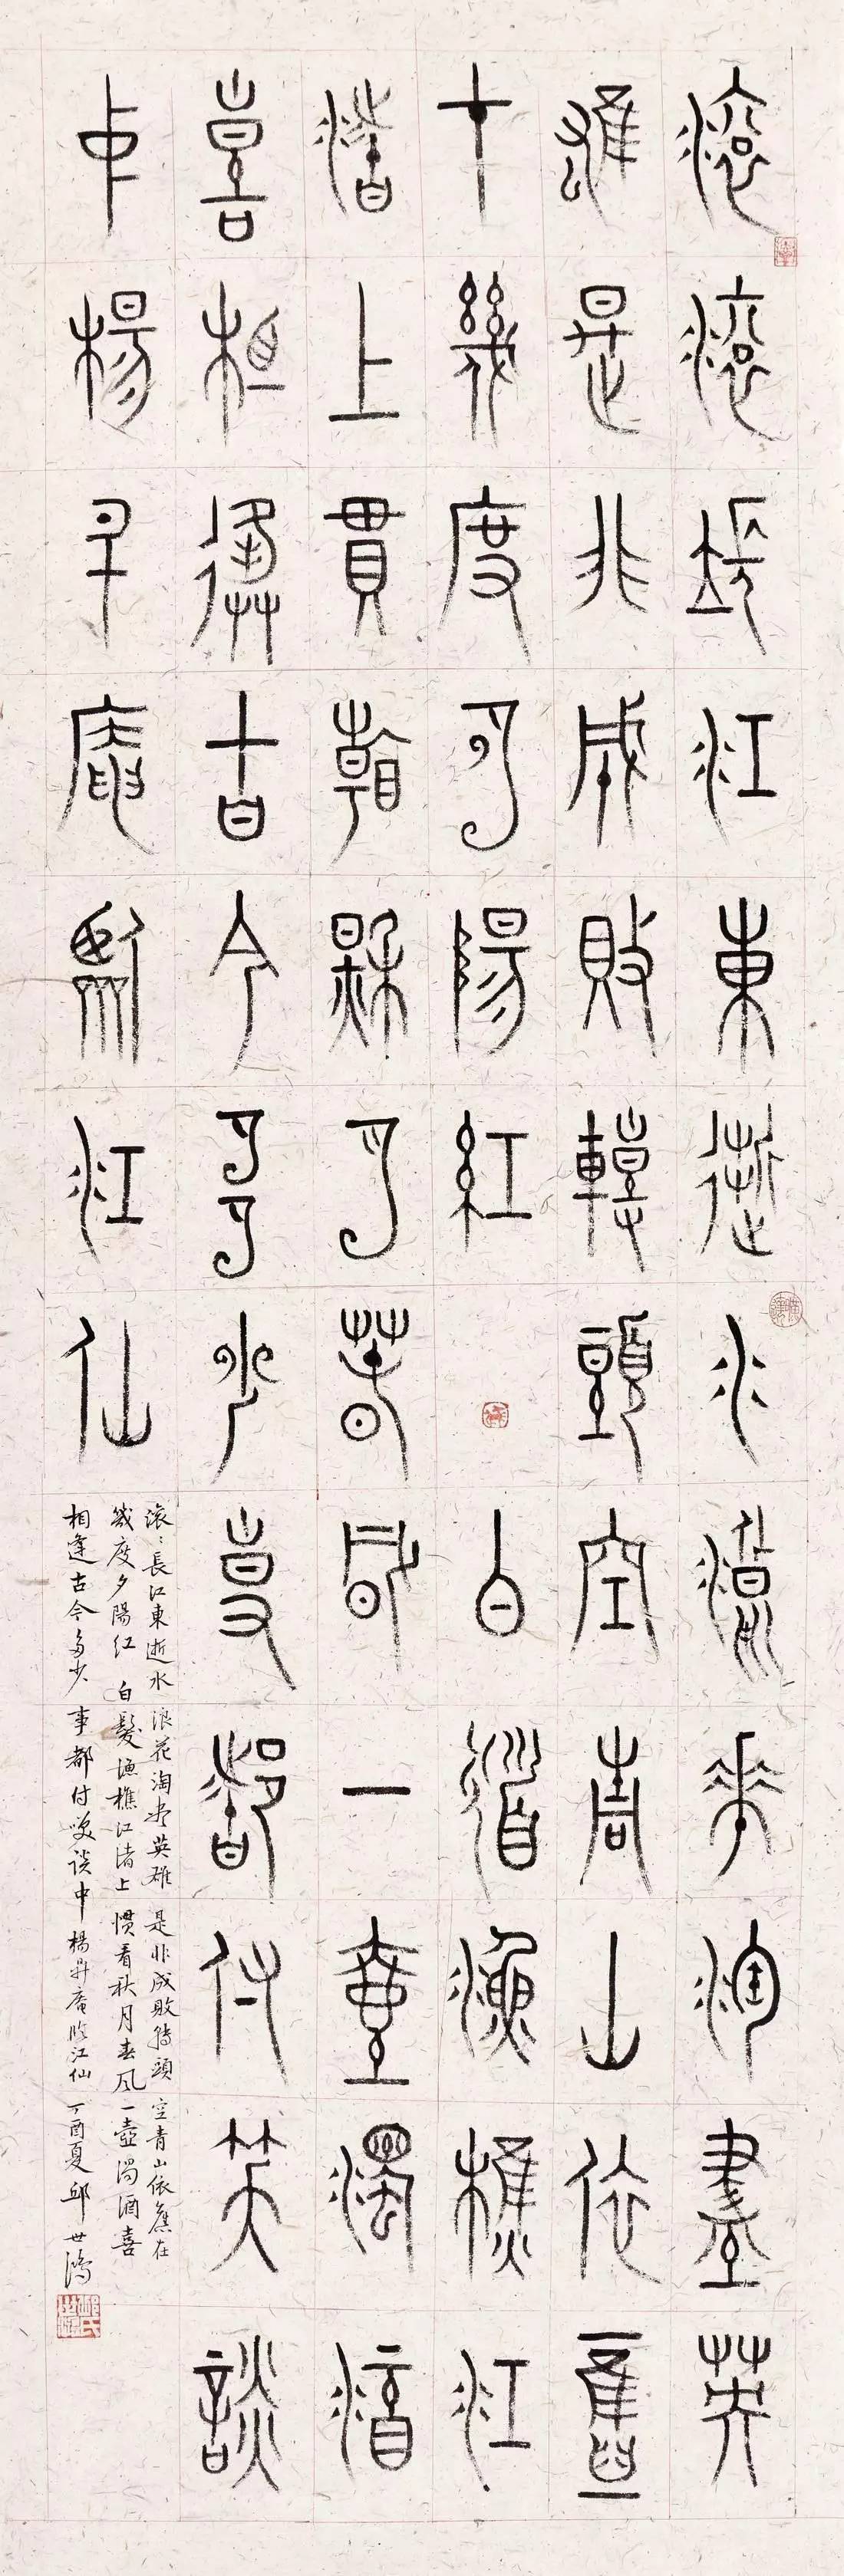 滾滾長江東逝水浪花淘盡英
雄是非成敗轉頭空青山依舊
在幾度夕陽紅 白髮漁樵江
渚上貫看秋月春風一壺濁酒
喜相逢古今多少事都付笑談
中楊升庵臨江仙
滾〻長江東逝水 浪花淘盡英雄 是非成敗轉頭 空青山依舊在
幾度夕陽紅 白髮漁樵江渚上 慣看秋月春風 一壺濁酒喜
相逢古今多少 事都付笑談中 楊升庵臨江仙 丁酉夏 邱世鴻